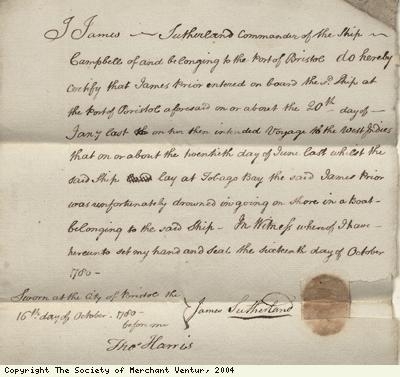 I James ~ Sutherland Commander of the Ship ~
Campbell of and belonging to the Port of Bristol do hereby
Certify that James Prior entered on board the sd. Ship at
the Port of Bristol aforesaid on or about the 20th day of -
Jany last on her then intended Voyage to the West Indies
that on or about the twentieth day of June last whilst the
said Ship lay at Tobago Bay the said James Prior
was unfortunately drowned in going on Shore in a boat -
belonging to the said Ship - In Witness whereof I have -
hereunto set my hand and seal the sixteenth day of October
1780 -
Sworn at the City of Bristol the
16th day of October . 1780 -
before me
James Sutherland
Thos Harris
Copyright The Society of Merchant Ventur, 2004